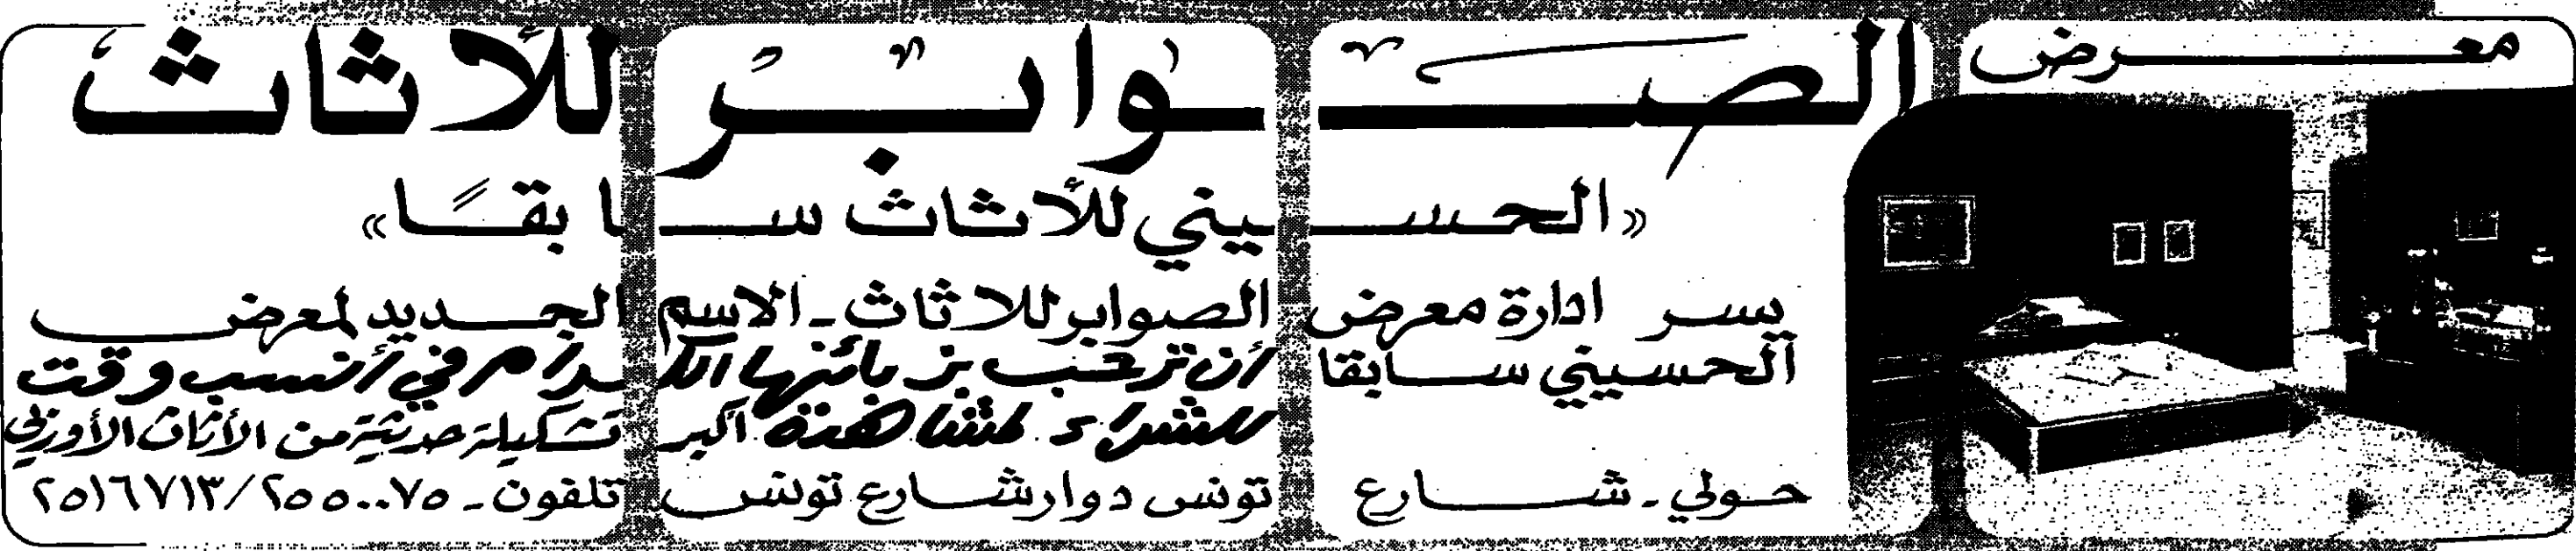 معرض
الصوابر للأثاث
«الحسيني للأثاث سابقًا»
يسر ادارة معرض الصوابر للاثاث - الاسم الجديد لمعرض
الحسيني سابقا أن ترحب بزبائنها الكرام في أنسب وقت
للشراء لمشاهدة أكبر تشكيلة حديثة من الأثاث الأوروبي
حولي - شارع تونس دوار شارع تونس تلفون - ٢٥٥٠٠٧٥/٢٥١٦٧١٣